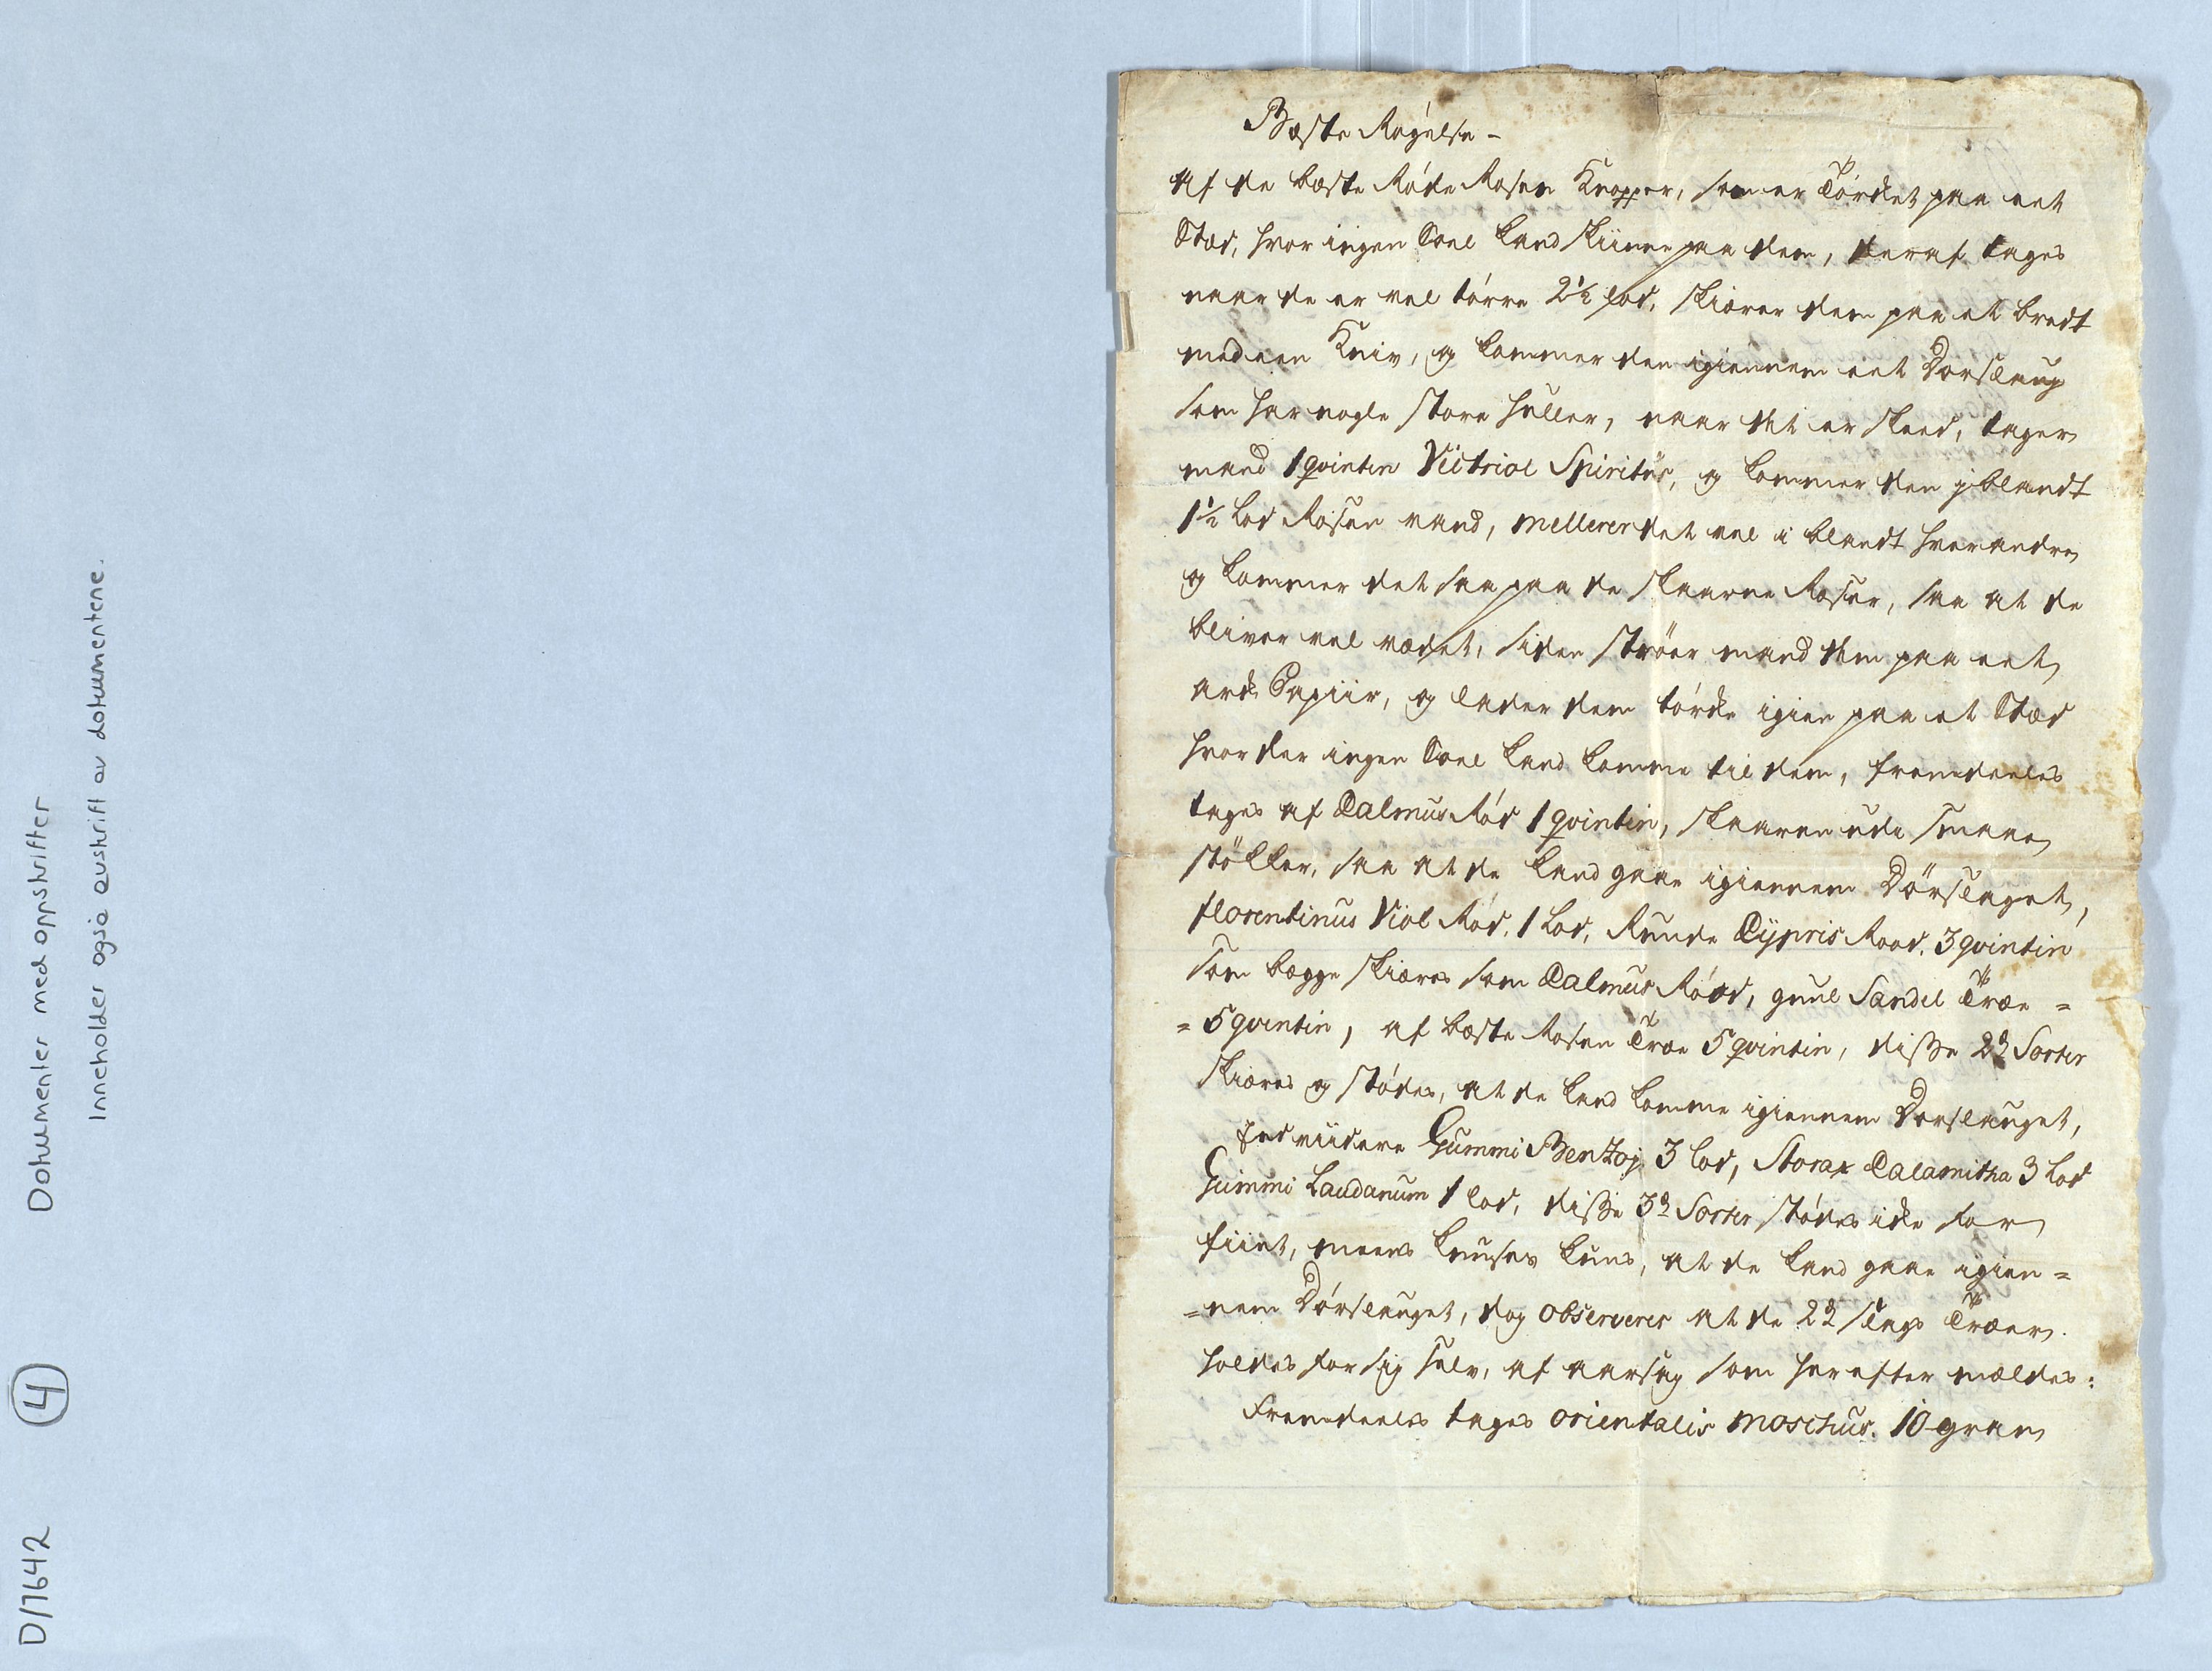 Dokumenter med oppskrifter
Inneholder også avskrift av dokumentene.
D/7642 4
Bæste Røgelse -
Af de bæste Røde Rosen Knopper, som er Tørket paa eet
Stæd, hvor ingen Soel kand skiinne paa dem, deraf tages
naar de er vel tørre 2½ Lod, skiærer dem paa et bredt
med een Kniv, og kommer den igiennem eet Dorslaug
som har nogle store huller, naar det er skeed, tager
mand 1 qvintin Victriol Spiritus, og kommer den iblandt
1½ Lod Rosen vand, mellerer det vel i blandt hverandre
og kommer det saa paa de skaarne Roser, saa at de
bliver vel vædet, siden ströer mand dem paa eet
ark Papiir, og lader dem tørke igien paa et Stæd
hvor der ingen Soel kand komme til dem, fremdeeles
tages af Calmus Rød 1 qvintin, skaaren udi smaae
stökker, saa at de kand gaae igiennem Dörslaget,
florentinus Viol Rød. 1 Lod, Runde Cypris Rood. 3 qvintin
som begge skiæres som Calmus Röød, guul Sandel Træe =
= 5 qvintin, af bæste Rosen Træe 5 qvintin, disse 2de Sorter
skiæres og stødes, at de kand komme igiennem Dorslauget,
End viidere Gummi Benzoj 3 Lod, Storax Calamitha 3 Lod
Gummi Laudanum 1 Lod, disse 3de Sorter stødes icke for
fiint, meens knuses kuns, at de kand gaae igien=
=nem Dörslauget, dog observeres at de 2de slags Træer
holdes for sig selv, af aarsag som herefter mældes:
Fremdeeles tages orientalis moschus. 10 gran